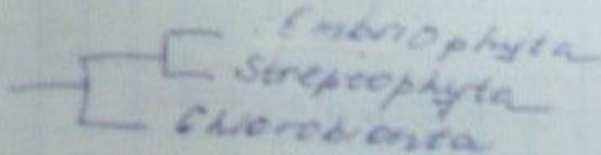 Embriophyta
Streptophyta
Chlorobionta